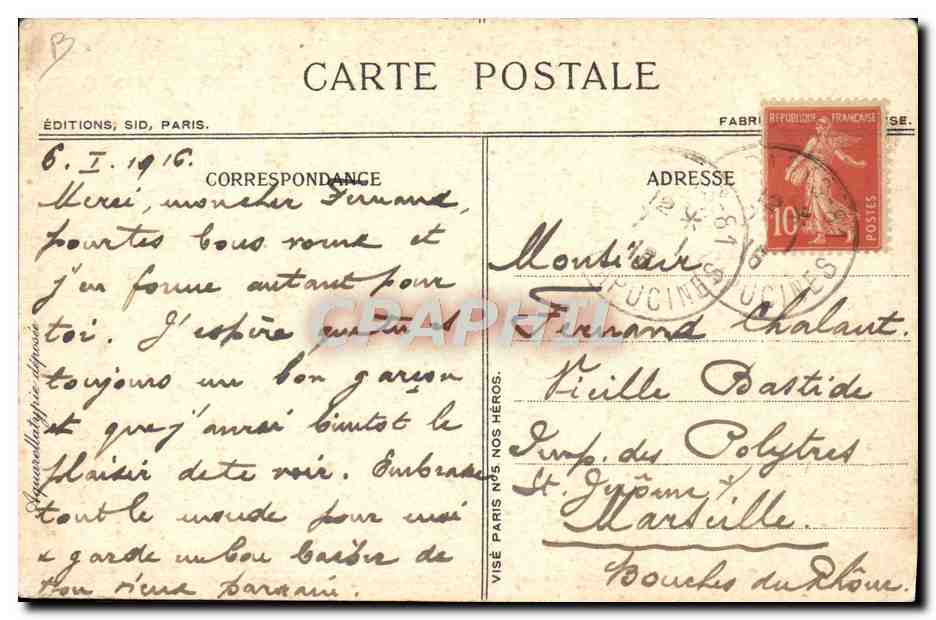 B
CARTE POSTALE
ÉDITIONS, SID, PARIS.
FABRI SE.
CORRESPONDANCE
ADRESSE
REPUBLIQUE FRANÇAISE
10
POSTES
PUCINES
UCINES
CPAPHIL
6. I. 1916.
Merci, mon cher Fernand,
pour tes bons voeux et
j'en forme autant pour
toi. J'espère que tu es
toujours un bon garçon
et que j'aurai bientot le
plaisir de te voir. Embrasse
tout le monde pour moi
& garde un bon baiser de
ton vieux parrain.
Aquarellatypie déposée
VISÉ PARIS N° 5. NOS HÉROS.
Monsieur
Fernand Chalaut.
Vieille Bastide
Imp. des Polytres
St. Jérôme
Marseille.
Bouches du Rhône.